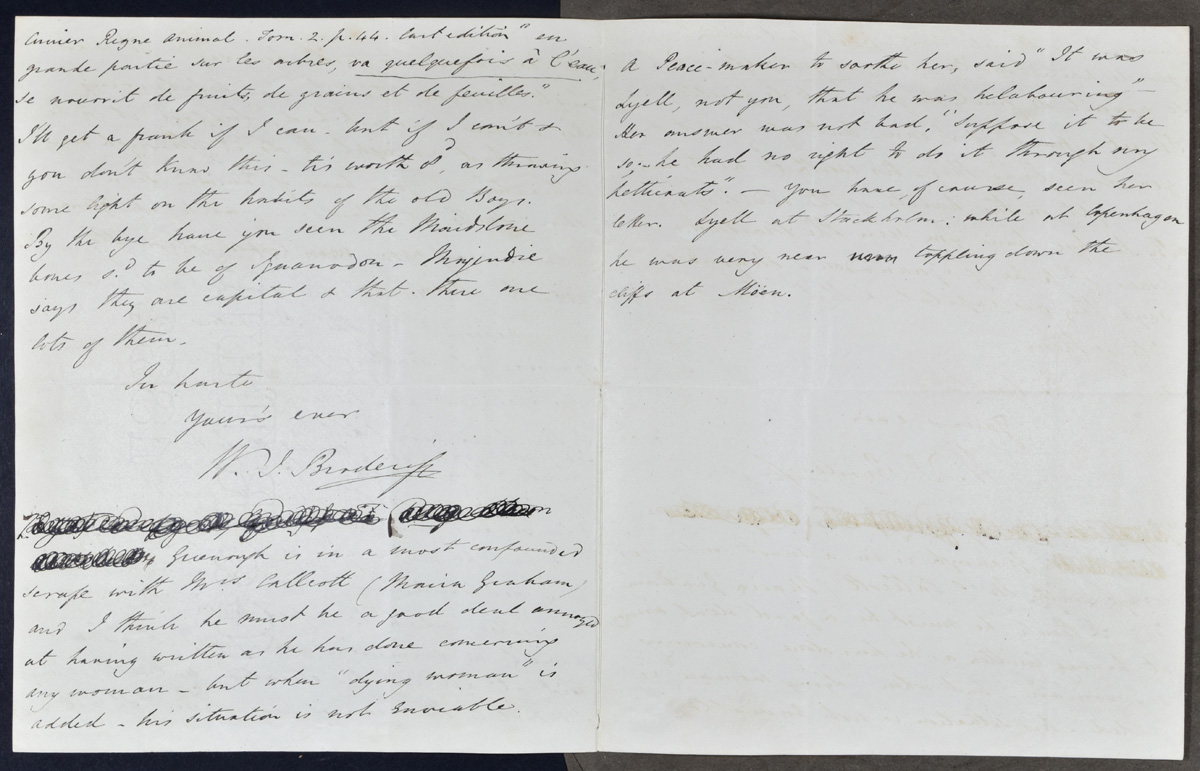 Cuvier Regne Animal. Tom. 2. p. 44. Last edition "en
grande partie sur les arbres, va quelquefois à l'eau,
se nourrit de fruits, de grains et de feuilles."
I'll get a frank if I can - but if I can't &
you don't know this - tis worth 8d, as throwing
some light on the habits of the old Boys.
By the bye have you seen the Maidstone
bones sd to be of Iguanodon -
says they are capital & that there are
lots of them.
In haste
Yours ever
W. J. Broderip
Greenough is in a most confounded
scrape with Mrs Callcott (Maria Graham)
and I think he must be a good deal annoyed
at having written as he has done concerning
any woman - but when "dying woman" is
added - his situation is not enviable.
A Peace-maker to soothe her, said "It was
Lyell, not you, that he was belabouring" -
Her answer was not bad, "Suppose it to be
so - he had no right to do it through my
petticoats". - You have, of course, seen her
letter. Lyell at Stockholm: while at Copenhagen
he was very near toppling down the
cliffs at Möen.